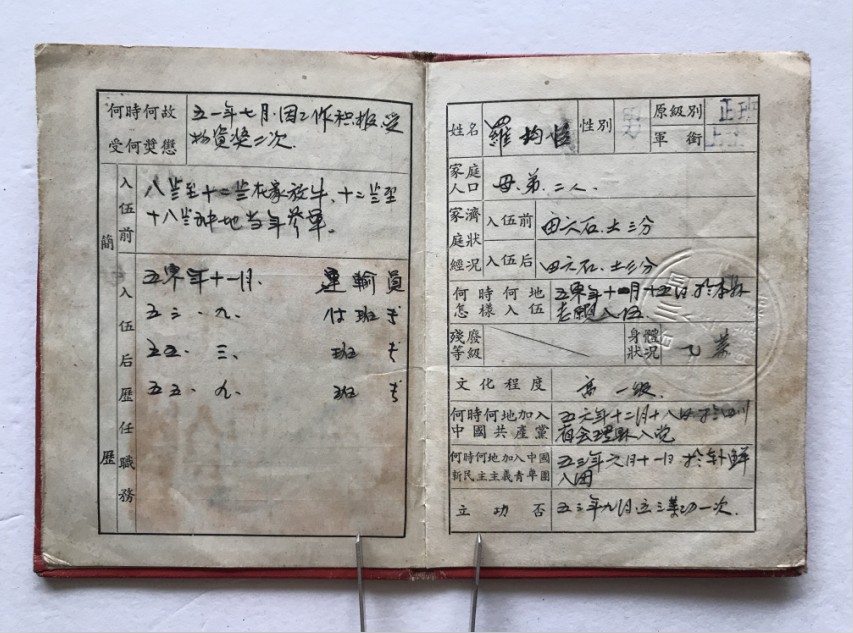 何時何故
受何獎懲
五一年七月.因工作积极.受
物資奖二次.
簡歷
入伍前
八岁至十二岁在家放牛.十二岁至
十八岁种地当年参军。
入伍后歷任職務
年十一月. 運輸員
五三.九. 付班
五五.三. 班
五五.九. 班
姓名
羅均
性別
男
原級別
正班
軍銜
上士
家庭
人口
母.弟.二人.
家庭經濟狀況
入伍前
田六石.土三分
入伍后
田六石.土三分
何時何地
怎樣入伍
年十月十五日於本
志願入伍.
殘廢
等級
身體
狀況
乙等
文化程度
高一級.
何時何地加入
中國共產黨
五六年十二月十八日於四川
省会理縣入党
何時何地加入中國
新民主主義青年團
五三年六月十一日於朝鮮
入团
立功否
五三年九月立三等功一次.